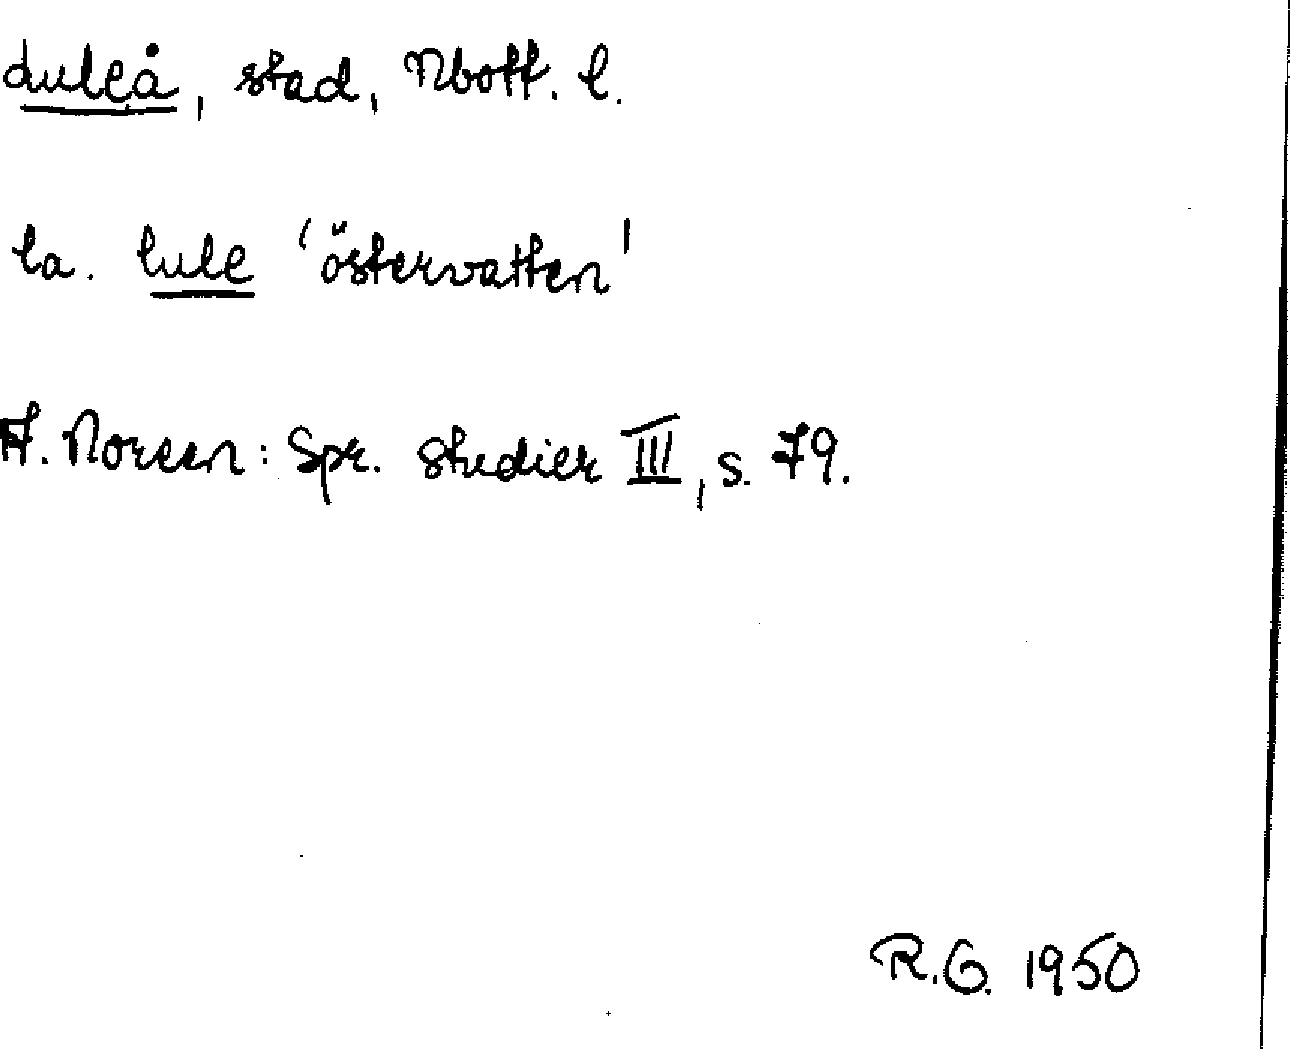 Luleå, stad, Nbott. l.
la. lule 'östervatten'
A. Noreen: Spr. studier III, s. 79.
R.G. 1950